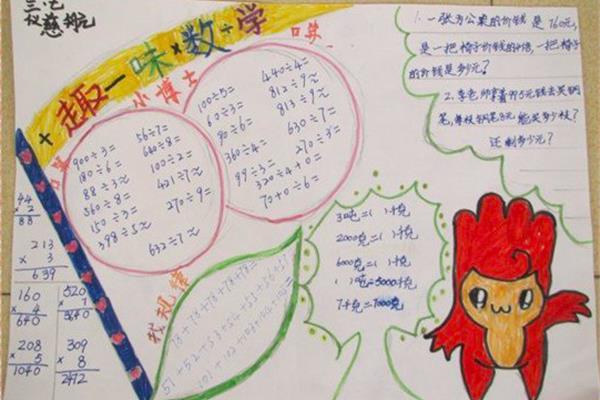 三.七
+趣-味×数÷学
小博士
口算
口算
900÷3=
180÷6=
88÷3≈
560÷8=
150÷3=
398÷5≈
56÷7=
640÷8=
100÷2=
421÷7≈
270÷9=
632÷7≈
100÷5=
60÷3=
90÷6=
360÷4=
99÷3=
320÷4+0=
70+0÷6=
440÷4=
812÷9≈
813÷9≈
630÷7=
270÷3=
1.一张办公桌的价钱是160元,
是一把椅子价钱的4倍,一把椅子
的价钱是多少元?
2.李老师拿着995元钱去买钢
笔,每枝钢笔8元,能买多少枝?
还剩多少元?
30吨=( )千克
2000克=( )千克
6000克=( )千克
( )吨=5000千克
7千克=7000克
44
× 2
88
213
× 3
639
160
× 4
640
520
× 7
3640
208
× 5
1040
309
× 8
2472